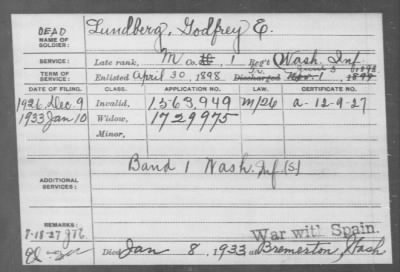 DEAD
NAME OF SOLDIER: Lundberg, Godfrey E.
SERVICE: Late rank, M Co. 1 Reg't Wash. Inf
TERM OF SERVICE: Enlisted April 30, 1898. Discharged Nov. 1, 1899
DATE OF FILING. CLASS. APPLICATION NO. LAW. CERTIFICATE NO.
1926, Dec. 9 Invalid, 1,563,949 M/26 a-12-9-27
1933 Jan 10 Widow, 1729975
Minor,
ADDITIONAL SERVICES: Band 1 Wash. Inf (S)
REMARKS:
7-18-27
War with Spain.
Died Jan 8, 1933 at Bremerton, Wash